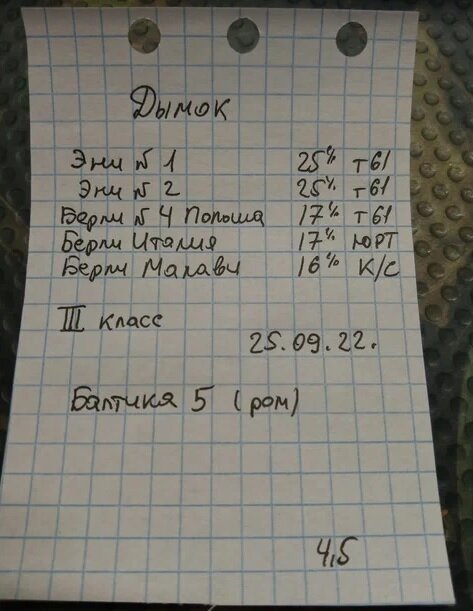 Дымок
Эни №1 25% т61
Эни №2 25% т61
Берли №4 Попоша 17% т61
Берли Италия 17% ЮРТ
Берли Малави 16% К/С
III класс
25.09.22.
Балтика 5 (ром)
4,5